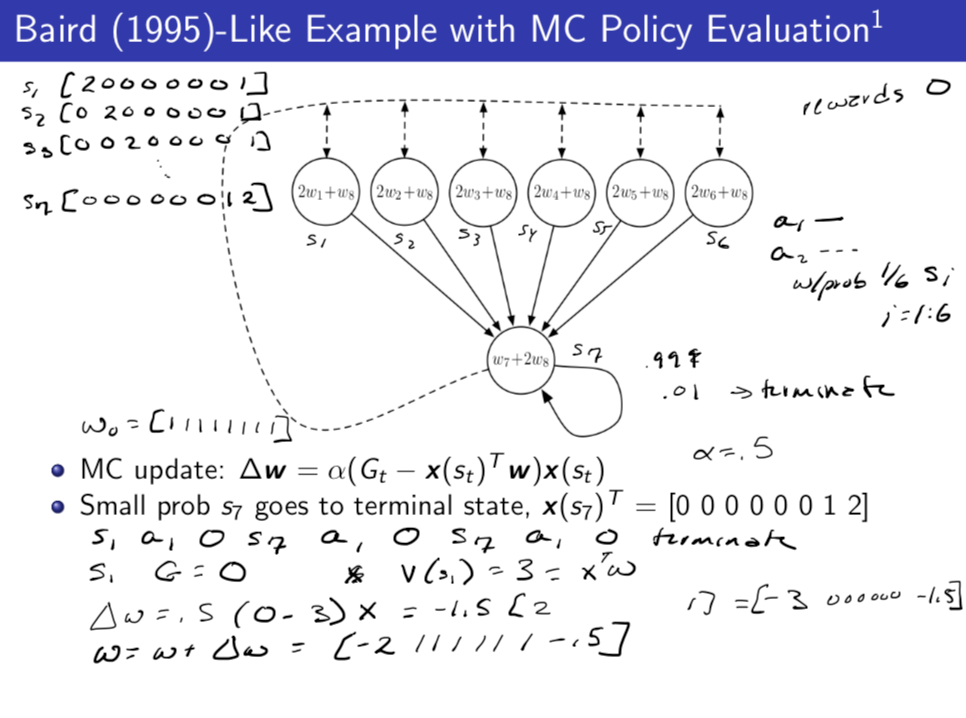 Baird (1995)-Like Example with MC Policy Evaluation¹
s₁ [2 0 0 0 0 0 0 1]
s₂ [0 2 0 0 0 0 0 1]
s₃ [0 0 2 0 0 0 0 1]
s₇ [0 0 0 0 0 0 1 2]
rewards 0
2w₁+w₈ 2w₂+w₈ 2w₃+w₈ 2w₄+w₈ 2w₅+w₈ 2w₆+w₈
s₁ s₂ s₃ s₄ s₅ s₆
a₁ —
a₂ ---
w/prob 1/6 sᵢ
i=1:6
w₇+2w₈ s₇
.99
.01 → terminate
w₀ = [1 1 1 1 1 1 1 1]
α = .5
• MC update: Δw = α(Gₜ − x(sₜ)ᵀw)x(sₜ)
• Small prob s₇ goes to terminal state, x(s₇)ᵀ = [0 0 0 0 0 0 1 2]
s₁ a₁ 0 s₇ a₁ 0 s₇ a₁ 0 terminate
s₁ G = 0 V(s₁) = 3 = xᵀw
Δw = .5 (0-3) x = -1.5 [2 1] = [-3 0 0 0 0 0 0 -1.5]
w = w + Δw = [-2 1 1 1 1 1 1 -.5]